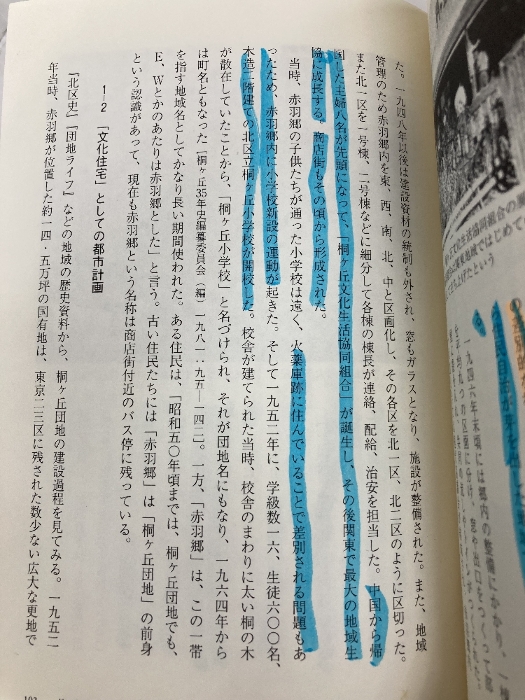 た。一九四八年以後は建設資材の統制も外され、窓もガラスとなり、施設が整備された。また、地域
管理のため赤羽郷内を東、西、南、北、中と区画化し、その各区を北一区、北二区のように区切った。
また北一区を一号棟、二号棟などに細分して各棟の棟長が連絡、配給、治安を担当した。中国から帰
国した主婦八名が先頭になって、「桐ヶ丘文化生活協同組合」が誕生し、その後関東で最大の地域生
協に成長する。商店街もその頃から形成された。
当時、赤羽郷の子供たちが通った小学校は遠く、火薬庫跡に住んでいることで差別される問題もあ
ったため、赤羽郷内に小学校新設の運動が起きた。そして一九五二年に、学級数一六、生徒六〇〇名、
木造二階建ての北区立桐ヶ丘小学校が開校した。校舎が建てられた当時、校舎のまわりに太い桐の木
が散在していたことから、「桐ヶ丘小学校」と名づけられ、それが団地名にもなり、一九六四年から
は町名ともなった（桐ヶ丘35年史編纂委員会（編）一九八一・九五―一四二）。一方、「赤羽郷」は、この一帯
を指す地域名としてかなり長い期間使われた。ある住民は、「昭和五〇年頃までは、桐ヶ丘団地でも、
E、Wとかのあたりは赤羽郷とした」と言う。古い住民たちには「赤羽郷」は「桐ヶ丘団地」の前身
という認識があって、現在も赤羽郷という名称は商店街付近のバス停に残っている。
1-2 「文化住宅」としての都市計画
『北区史』『団地ライフ』などの地域の歴史資料から、桐ヶ丘団地の建設過程を見てみる。一九五二
年当時、赤羽郷が位置した約一四・五万坪の国有地は、東京二三区に残された数少ない広大な更地で